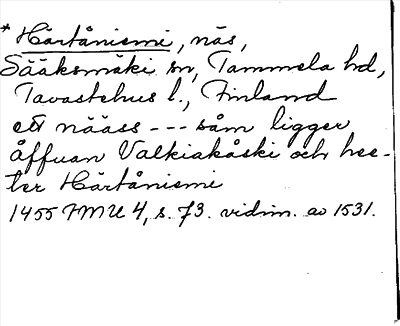 * Härtånismi, näs,
Sääksmäki sn, Tammela hd,
Tavastehus l., Finland
ett nääss --- såm ligger
åffuan Valkiakåski och hee-
ter Härtånismi
1455 FMU 4, s. 73. vidim. av 1531.